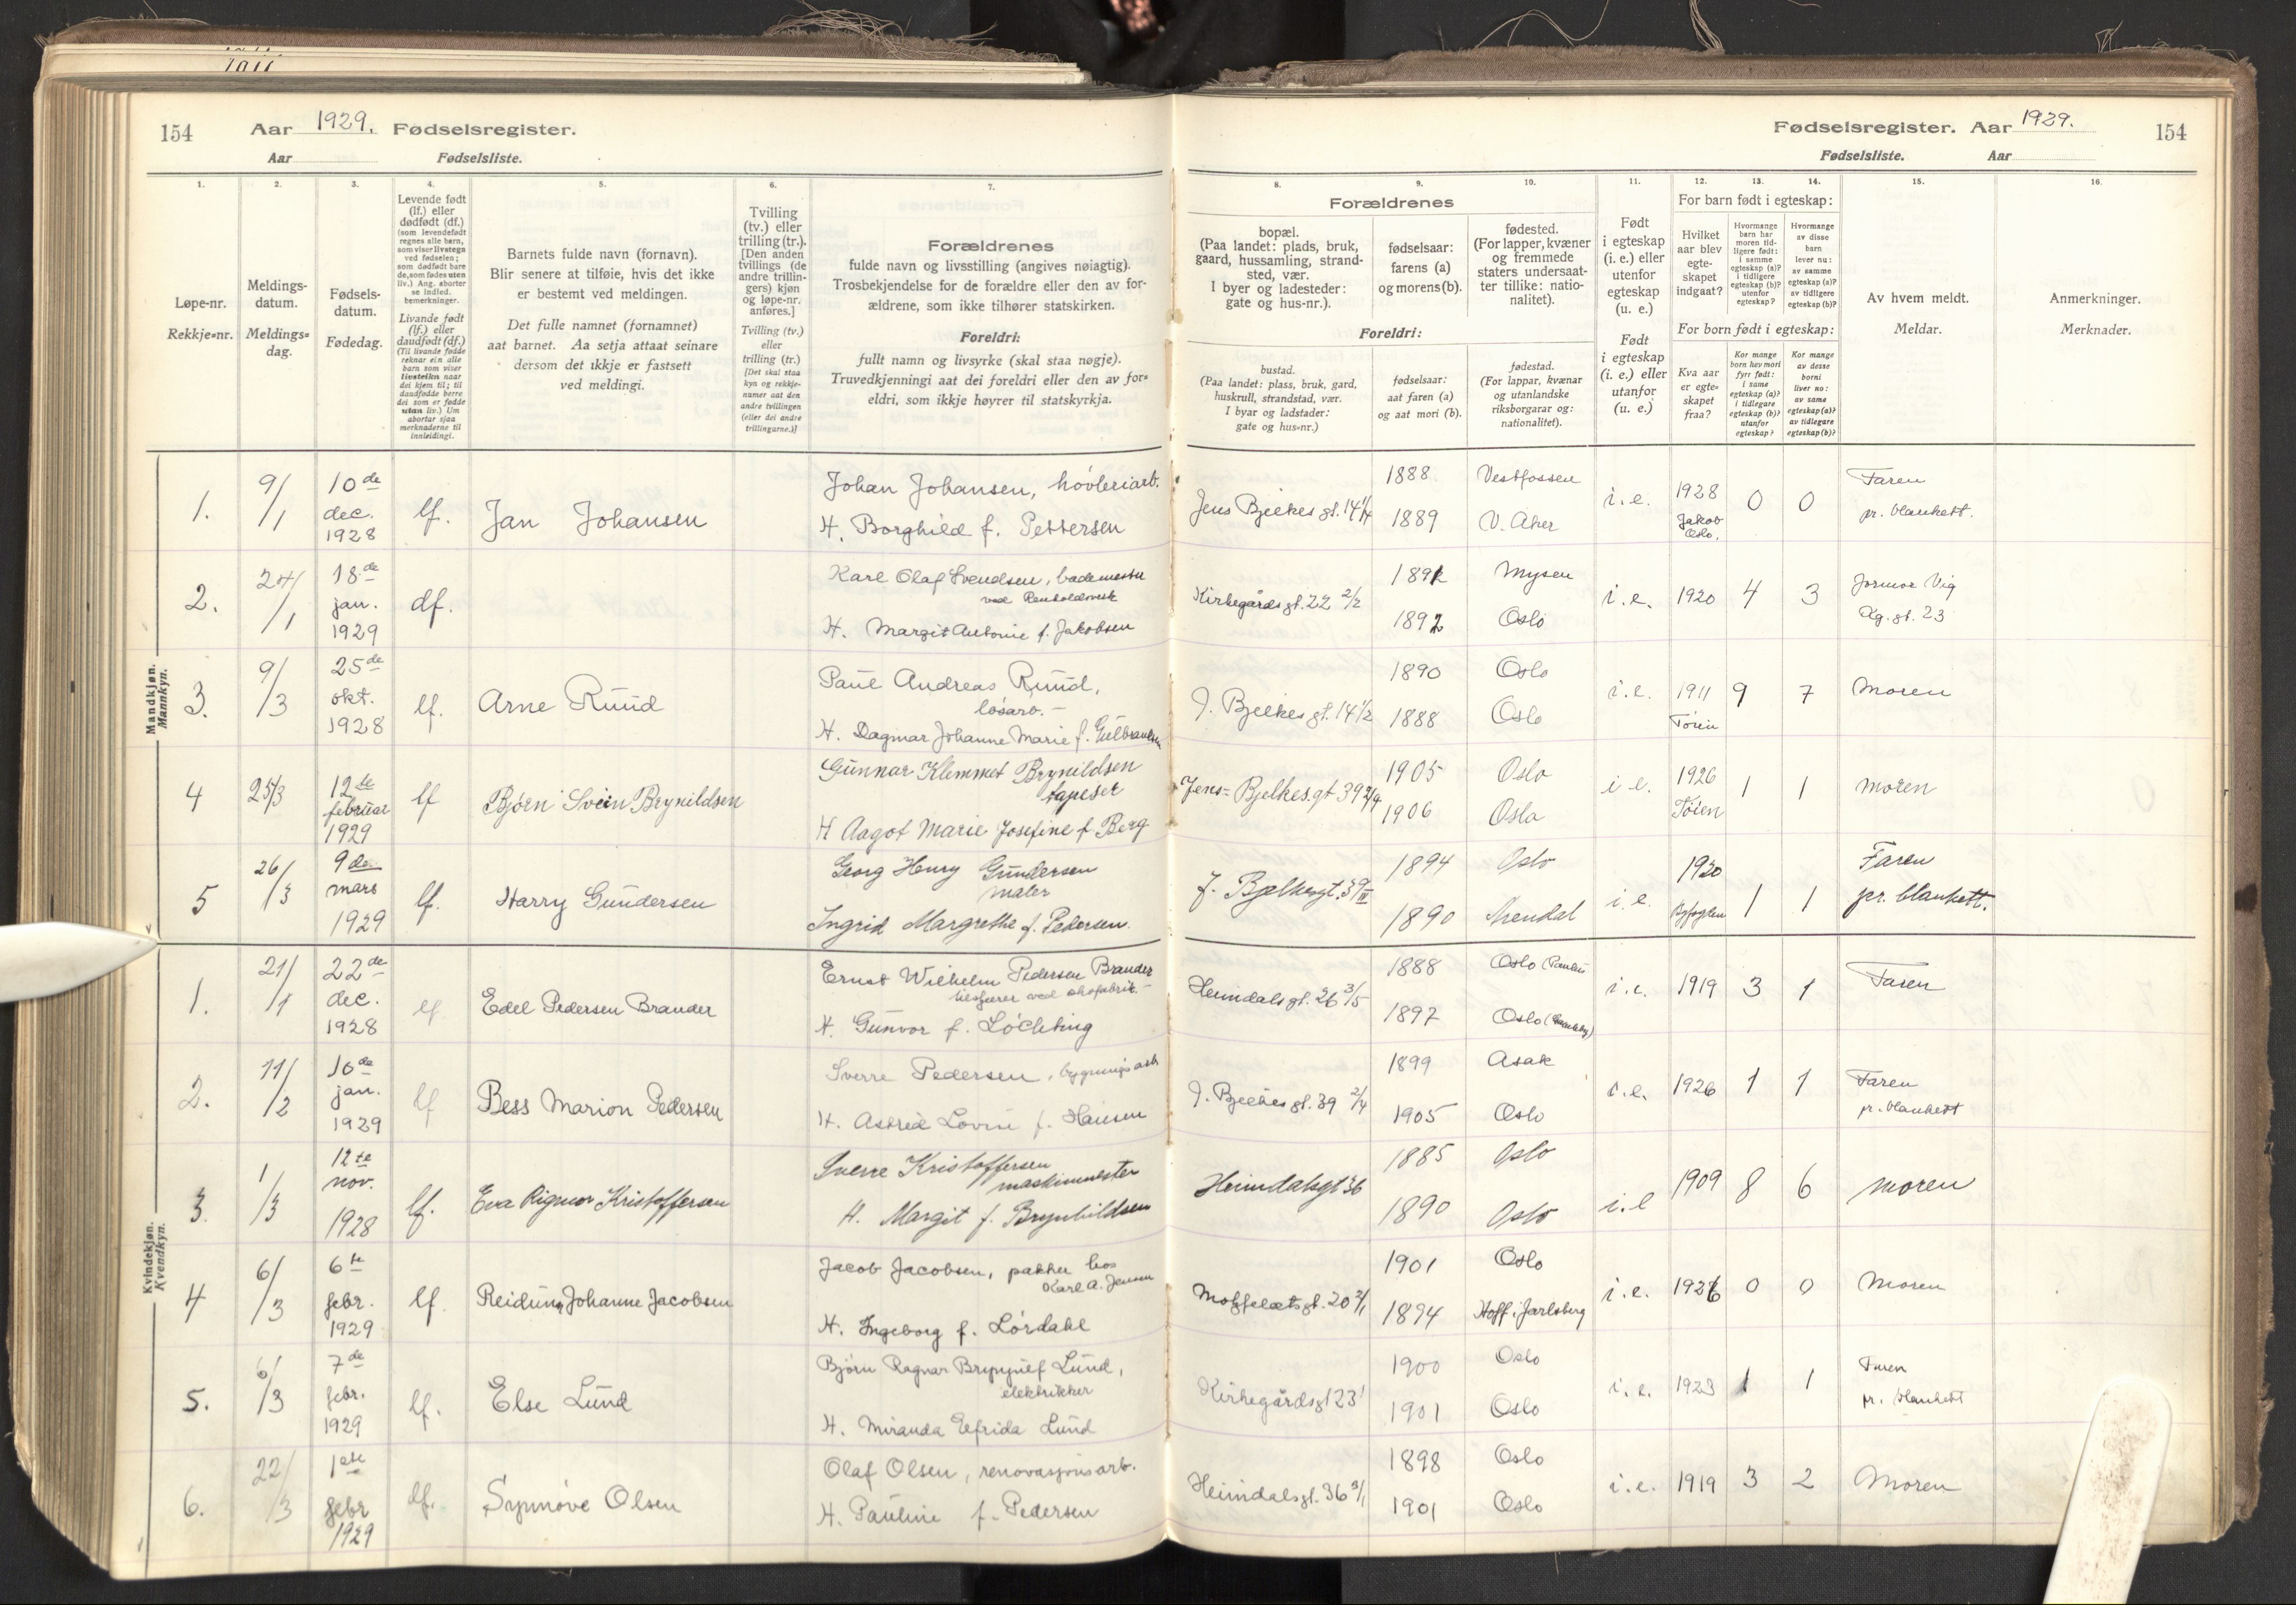 154 Aar 1929. Fødselsregister.
Aar Fødselsliste.
Fødselsregister. Aar 1929. 154
Fødselsliste. Aar
1.
Løpe-nr.
Rekkje=nr.
2.
Meldings-
datum.
Meldings=
dag.
3.
Fødsels-
datum.
Fødedag.
4.
Levende født
(lf.) eller
dødfødt (df.)
(som levendefødt
regnes alle barn,
som viser livstegn
ved fødselen;
som dødfødt bare
de, som fødes uten
liv.) Ang. aborter
se indled.
bemerkninger.
Livande født
(lf.) eller
daudfødt (df.)
(Til livande fødde
reknar ein alle
barn som viser
livsteikn naar
dei kjem til; til
daudfødde berre
dei som er fødde
utan liv.) Um
abortar sjaa
merknaderne til
innleidingi.
5.
Barnets fulde navn (fornavn).
Blir senere at tilføie, hvis det ikke
er bestemt ved meldingen.
Det fulle namnet (fornamnet)
aat barnet. Aa setja attaat seinare
dersom det ikkje er fastsett
ved meldingi.
6.
Tvilling
(tv.) eller
trilling (tr.).
[Den anden
tvillings (de
andre trillin-
gers) kjøn
og løpe-nr.
anføres.]
Tvilling (tv.)
eller
trilling (tr.)
[Det skal staa
kyn og rekkje-
numer aat den
andre tvillingen
(eller dei andre
trillingarne.)]
7.
Forældrenes
fulde navn og livsstilling (angives nøiagtig).
Trosbekjendelse for de forældre eller den av for-
ældrene, som ikke tilhører statskirken.
Foreldri:
fullt namn og livsyrke (skal staa nøgje).
Truvedkjenningi aat dei foreldri eller den av for=
eldri, som ikkje høyrer til statskyrkja.
Forældrenes
8.
bopæl.
(Paa landet: plads, bruk,
gaard, hussamling, strand-
sted, vær.
I byer og ladesteder:
gate og hus-nr.).
9.
fødselsaar:
farens (a)
og morens (b).
10.
fødested.
(For lapper, kvæner
og fremmede
staters undersaat-
ter tillike: natio-
nalitet).
Foreldri:
bustad.
(Paa landet: plass, bruk, gard,
huskrull, strandstad, vær.
I byar og ladstader:
gate og hus=nr.)
fødselsaar:
aat faren (a)
og aat mori (b).
fødestad.
(For lappar, kvænar
og utanlandske
riksborgarar og:
nationalitet).
11.
Født
i egteskap
(i. e.) eller
utenfor
egteskap
(u. e.)
Født
i egteskap
(i. e.) eller
utanfor
(u. e.)
For barn født i egteskap:
12.
Hvilket
aar blev
egte-
skapet
indgaat?
13.
Hvormange
barn har
moren tid-
ligere født:
i samme
egteskap (a)?
i tidligere
egteskap (b)?
utenfor
egteskap?
14.
Hvormange
av disse
barn
lever nu:
av samme
egteskap (a)?
av tidligere
egteskap (b)?
For born født i egteskap:
Kva aar
er egte=
skapet
fraa?
Kor mange
born hev mori
fyrr født:
i same
egteskap (a)?
i tidlegare
egteskap (b)?
utanfor
egteskap?
Kor mange
av desse
borni
liver no:
av same
egteskap (a)?
av tidlegare
egteskap (b)?
15.
Av hvem meldt.
Meldar.
16.
Anmerkninger.
Merknader.
Mandkjøn.
Mannkyn.
1. 9/1 10de dec. 1928 lf. Jan Johansen
Johan Johansen, høvleriarb.
H. Borghild f. Pettersen
Jens Bjelkes gt. 14 1/4 1888 1889 Vestfossen V. Aker i.e. 1928 Jakob Oslo. 0 0 Faren pr. blankett.
2. 24/1 18de jan. 1929 df.
Karl Olaf Svendsen, bademester
ved Renholdsverk
H. Margit Antonie f. Jakobsen
Kirkegårdsgt. 22 2/2 1892 Mysen Oslo i.e. 1920 4 3 Jormor Vig
gt. 23
3. 9/3 25de okt. 1928 lf. Arne Ruud
Paul Andreas Ruud,
løsarb.
H. Dagmar Johanne Marie f. Gulbrandsen
J. Bjelkes gt. 14 1/2 1890 1888 Oslo Oslo i.e. 1911 Tøien 9 7 Moren
4 25/3 12te februar 1929 lf Bjørn Svein Brynildsen
Gunnar Klemmet Brynildsen
tapeser
H Aagot Marie Josefine f Berg
Jens= Bjelkes.gt 39 2/4 1905 1906 Oslo Oslo i e. 1926 Tøien 1 1 Moren
5 26/3 9de mars 1929 lf. Harry Gundersen
Georg Henry Gundersen
maler
Ingrid Margrethe f. Pedersen.
J. Bjelkesgt. 39 III 1894 1890 Oslo Arendal i.e. 1920 Byfogden 1 1 Faren pr. blankett.
Kvindekjøn.
Kvendkyn.
1. 21/1 22de dec. 1928 lf Edel Pedersen Brander
Ernst Wilhelm Pedersen Brander
ved skofabrik.
H. Gunvor f. Løchting
Heimdalsgt. 26 3/5 1888 1897 Oslo (Paulus Oslo i.e. 1919 3 1 Faren
2. 11/2 10de jan. 1929 lf Bess Marion Pedersen
Sverre Pedersen, bygningsarb
H. Astrid Lovise f. Hansen
J. Bjelkes gt. 39 2/4 1899 1905 Asak Oslo i.e. 1926 1 1 Faren pr. blankett
3. 1/3 12te nov. 1928 lf. Eva Rigmor Kristoffersen
Sverre Kristoffersen
maskinmester
H. Margit f. Brynhildsen
Heimdalsgt 36 1885 1890 Oslo Oslo i.e 1909 8 6 Moren
4 6/3 6te febr. 1929 lf. Reidun Johanne Jacobsen
Jacob Jacobsen, pakker hos
Karl A. Jensen
H. Ingeborg f. Lørdahl
Motzfeldtsgt. 20 3/1 1901 1894 Oslo Hoff i Jarlsberg i.e. 1926 0 0 Moren
5. 6/3 7de febr. 1929 lf. Else Lund
Bjørn Ragnar Brynjulf Lund,
elektrikker
H. Miranda Elfrida Lund
Kirkegårdsgt 23 1 1900 1901 Oslo Oslo i.e. 1923 1 1 Faren pr. blankett
6. 22/3 1ste febr 1929 lf. Synnøve Olsen
Olaf Olsen, renovasjonsarb.
H. Pauline f. Pedersen
Heimdalsgt. 36 3/1 1898 1901 Oslo Oslo i.e. 1919 3 2 Moren